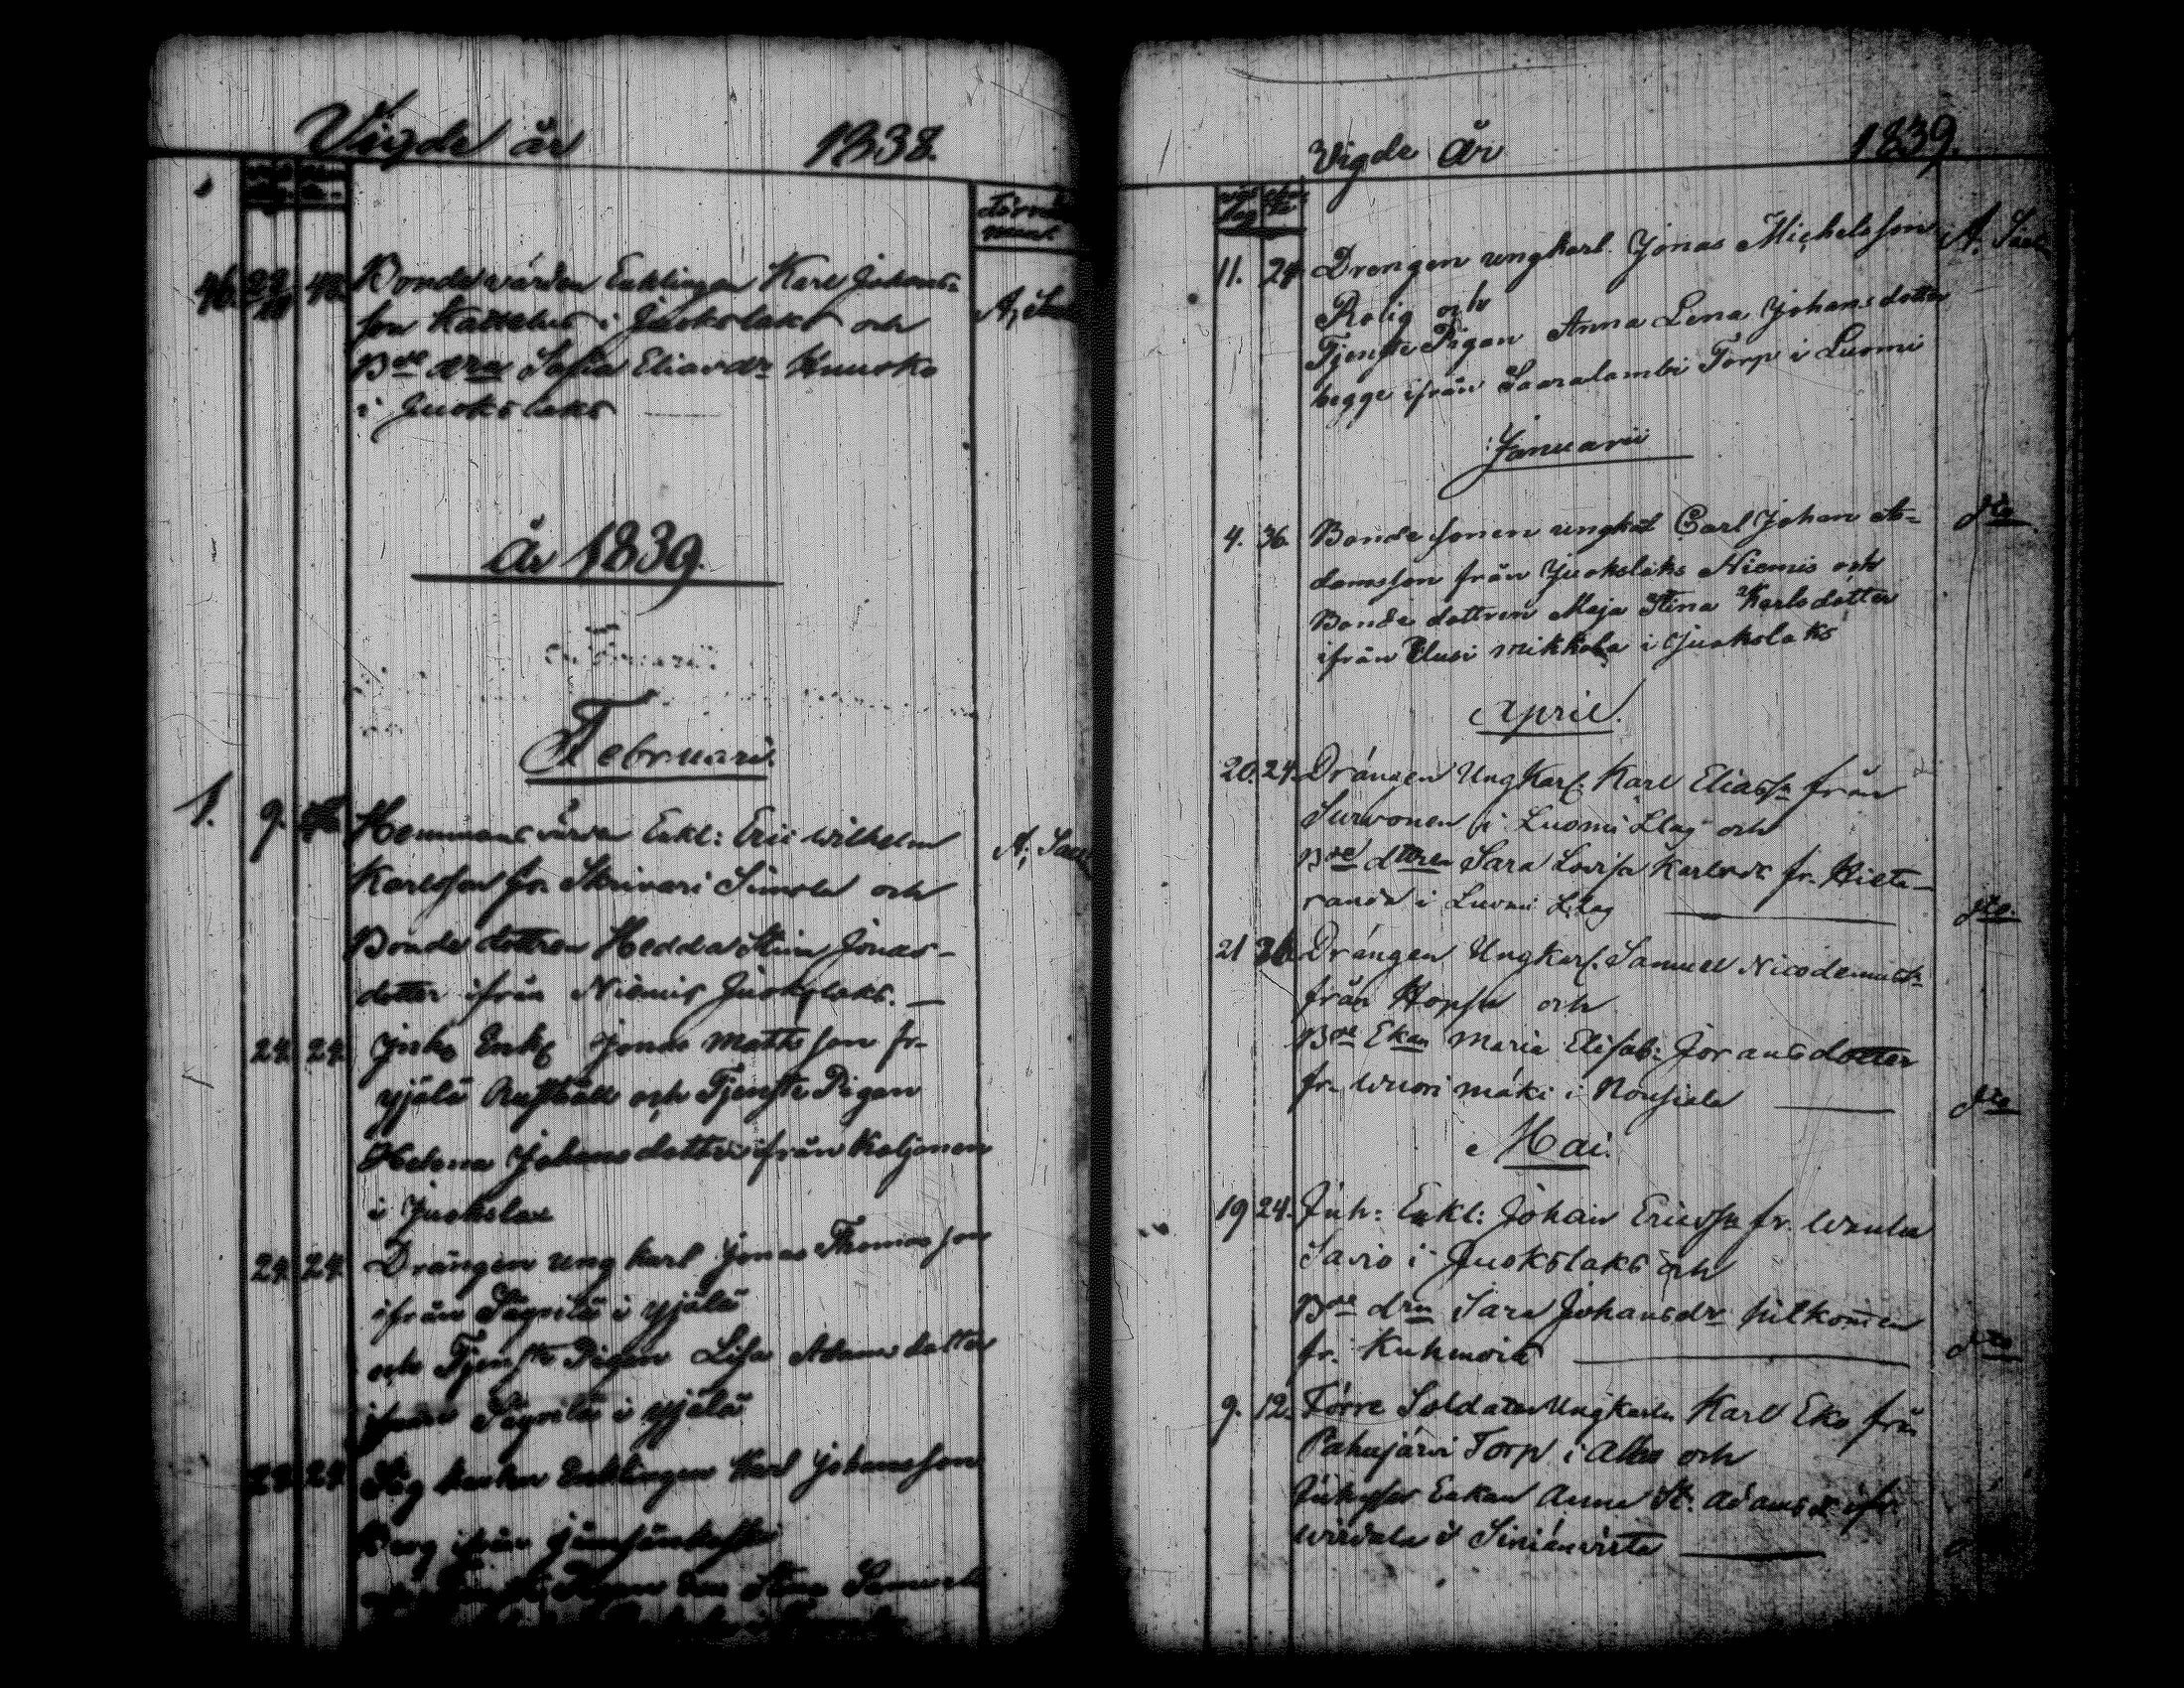 Vigde år 1838.
46. 29 48. Bonde värden Enklingen Karl Johans-
son Kattelus i Juokslaks och
Bde dren Sofia Eliasdr Knuska
i Juokslaks
År 1839.
Februari.
1. 9. Hemmans värden Enkl: Eric Wilhelm
Karlsson fr. Skrivari Simola och
Bonde dottren Hedda Stina Jonas-
dotter ifrån Niemis Juokslaks. —
24. 24. Inh. Enkl Jonas Mattsson fr.
Yjälä Rusthåll och Tjenste Pigan
Helena Johansdotter ifrån Koljonen
i Juokslax
24. 24. Drängen ung karl Jonas Thomasson
ifrån Sägvilä i Yjälä
och Tjenste Pigan Lisa Adamsdotter
ifrån Sägvilä i Yjälä
24. 24. Enklingen Karl Johansson
Berg ifrån
Stina Samuels
Vigde År 1839.
vigs dag
11. 24. Drengen ungkarl. Jonas Michelsson A. Sael
Rolig och
Tjenste Pigan Anna Lena Johansdotter
begge ifrån Saaralambi Torp i Luomi
Januarii
4. 36. Bondesonen ungkal Carl Johan A- dto
damsson från Juokslaks Niemis och
Bonde dottren Maja Stina Karlsdotter
ifrån Uusi mikkola i Juokslaks
April.
20. 24. Drängen Ungkarl. Karl Eliass: från
Survonen i Luomi Llag och
Bde dttren Sara Lovisa Karlsdr fr. Hieta-
randa i Luomi L:lag — dto.
21 36 Drängen Ungkarl. Samuel Nicodemuss:
från Hopsu och
Bde Ekan Maria Elisab: Joransdotter
fr. Wuori mäki i Rousiala — dto
Mai.
19 24. Inh: Enkl: Johan Ericss: fr.
Savio i Juokslaks och
Bde drn Sara Johansdr hitkomen
fr. Kuhmois — dto
9. 12. Förre Soldaten Ungkarln Karl Eko från
Pahajärvi Torp i Alho och
Enkan Anna St. Adamsdr ifr.
Wirdala i Siniänvirta —